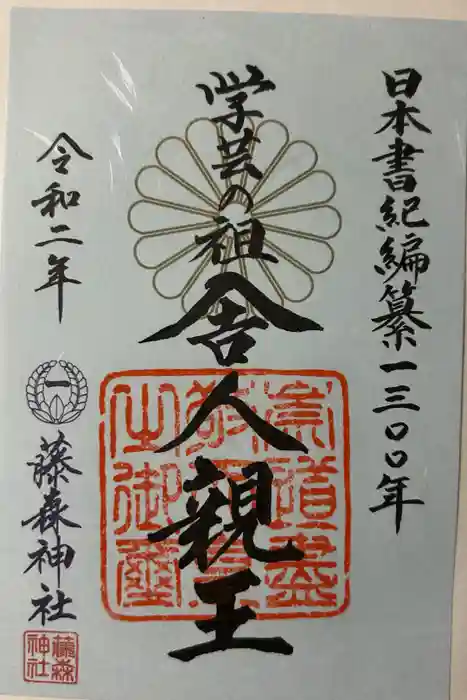 日本書紀編纂一三〇〇年
学芸の祖
舎人親王
令和二年
一
藤森神社
藤森
神社